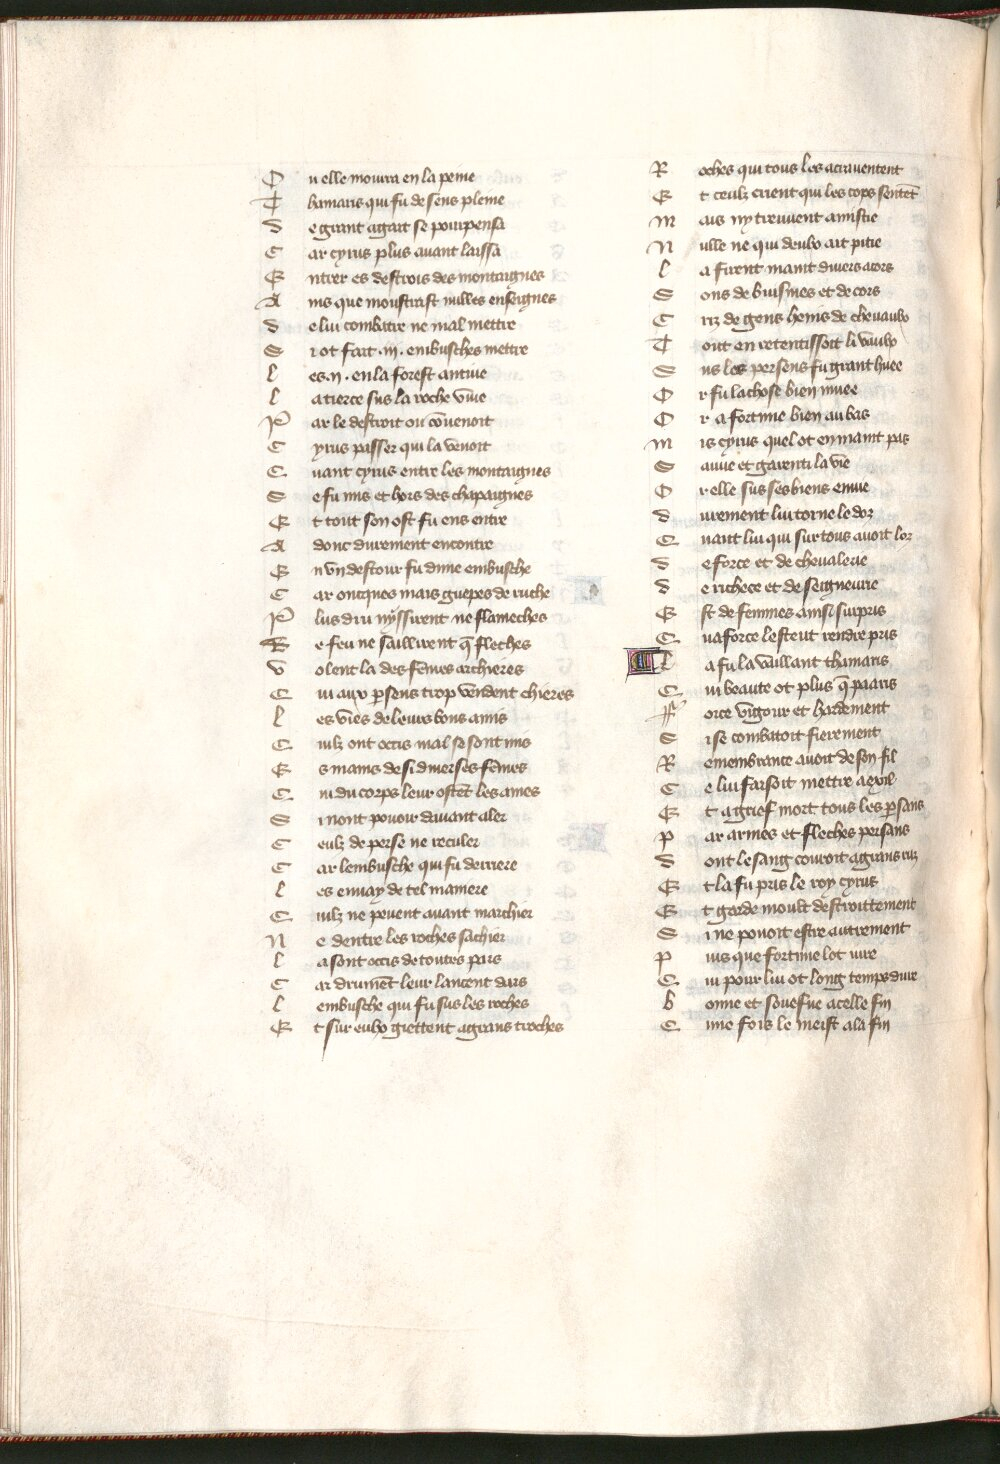 O u elle mourra en la peine
T hamaris qui fu de sens pleine
D e grant agait se pourpensa
C ar cyrus plus auant laissa
E ntrer es destrois des montaignes
A ins que moustrast nulles enseignes
D e lui combatre ne mal mettre
S i ot fait .iii. embusches mettre
L es .ii. en la forest antiue
L a tierce sus la roche viue
P ar le destroit ou cōuenoit
C yrus passer qui la venoit
Q uant cyrus entre les montaignes
S e fu mis et hors des chāpaignes
E t tout son ost fu ens entre
A donc durement encontre
E n vn destour fu dune embusche
C ar oncques mais guepes de ruche
P lus dru nyssirent ne flameches
R e feu ne saillirent q̄ fleches
V olent la des fēmes archieres
Q ui aux ꝑsens trop vendent chieres
L es vies de leurs bons amis
Q uilz ont occis mal se sont mis
E s mains de si diuerses fēmes
Q ui du corps leur ostēt les ames
S i nont pouoir dauant aler
C eulz de perse ne reculer
C ar lembusche qui fu derriere
L es enuay de tel maniere
Q uilz ne peuent auant marchier
N e dentre les roches sachier
L a sont occis de toutes pars
C ar drumēt leur lancent dars
L embusche qui fu sus les roches
E t sur eulx giettent a grans troches
R oches qui tous les acrauentent
E t ceulz crient qui les cops sentēt
M ais ny treuuent amistie
N ulle ne qui deulx ait pitie
L a firent maint diuers acors
S ons de buisines et de cors
C riz de gens henis de cheuaulx
T out en retentissoit li vaulx
S us les persens fu grant huee
O r fu la chose bien muee
O r a fortune bien au bas
M is cyrus quel ot en maint pas
S auue et garenti la vie
O r elle sus ses biens enuie
D urement lui torne le doz
Q uant lui qui sur tous auoit loz
D e force et de cheualerie
D e richece et de seigneurie
E st de femmes ainsi surpris
Q ua force lesteut rendre pris
L a fu la vaillant thamaris
Q ui beaute ot plus q̄ paaris
F orce vigour et hardement
S i se combatoit fierement
R emembrance auoit de son fil
C e lui faisoit mettre a exil
E t a grief mort tous les ꝑsans
P ar armes et fleches persans
D ont le sang couroit a grans ruz
E t la fu pris le roy cyrus
E t garde moult destroittement
S i ne pouoit estre autrement
P uis que fortune lot iure
Q ui pour lui ot long temps dure
B onne et souefue a celle fin
Q une fois le meist a la fin